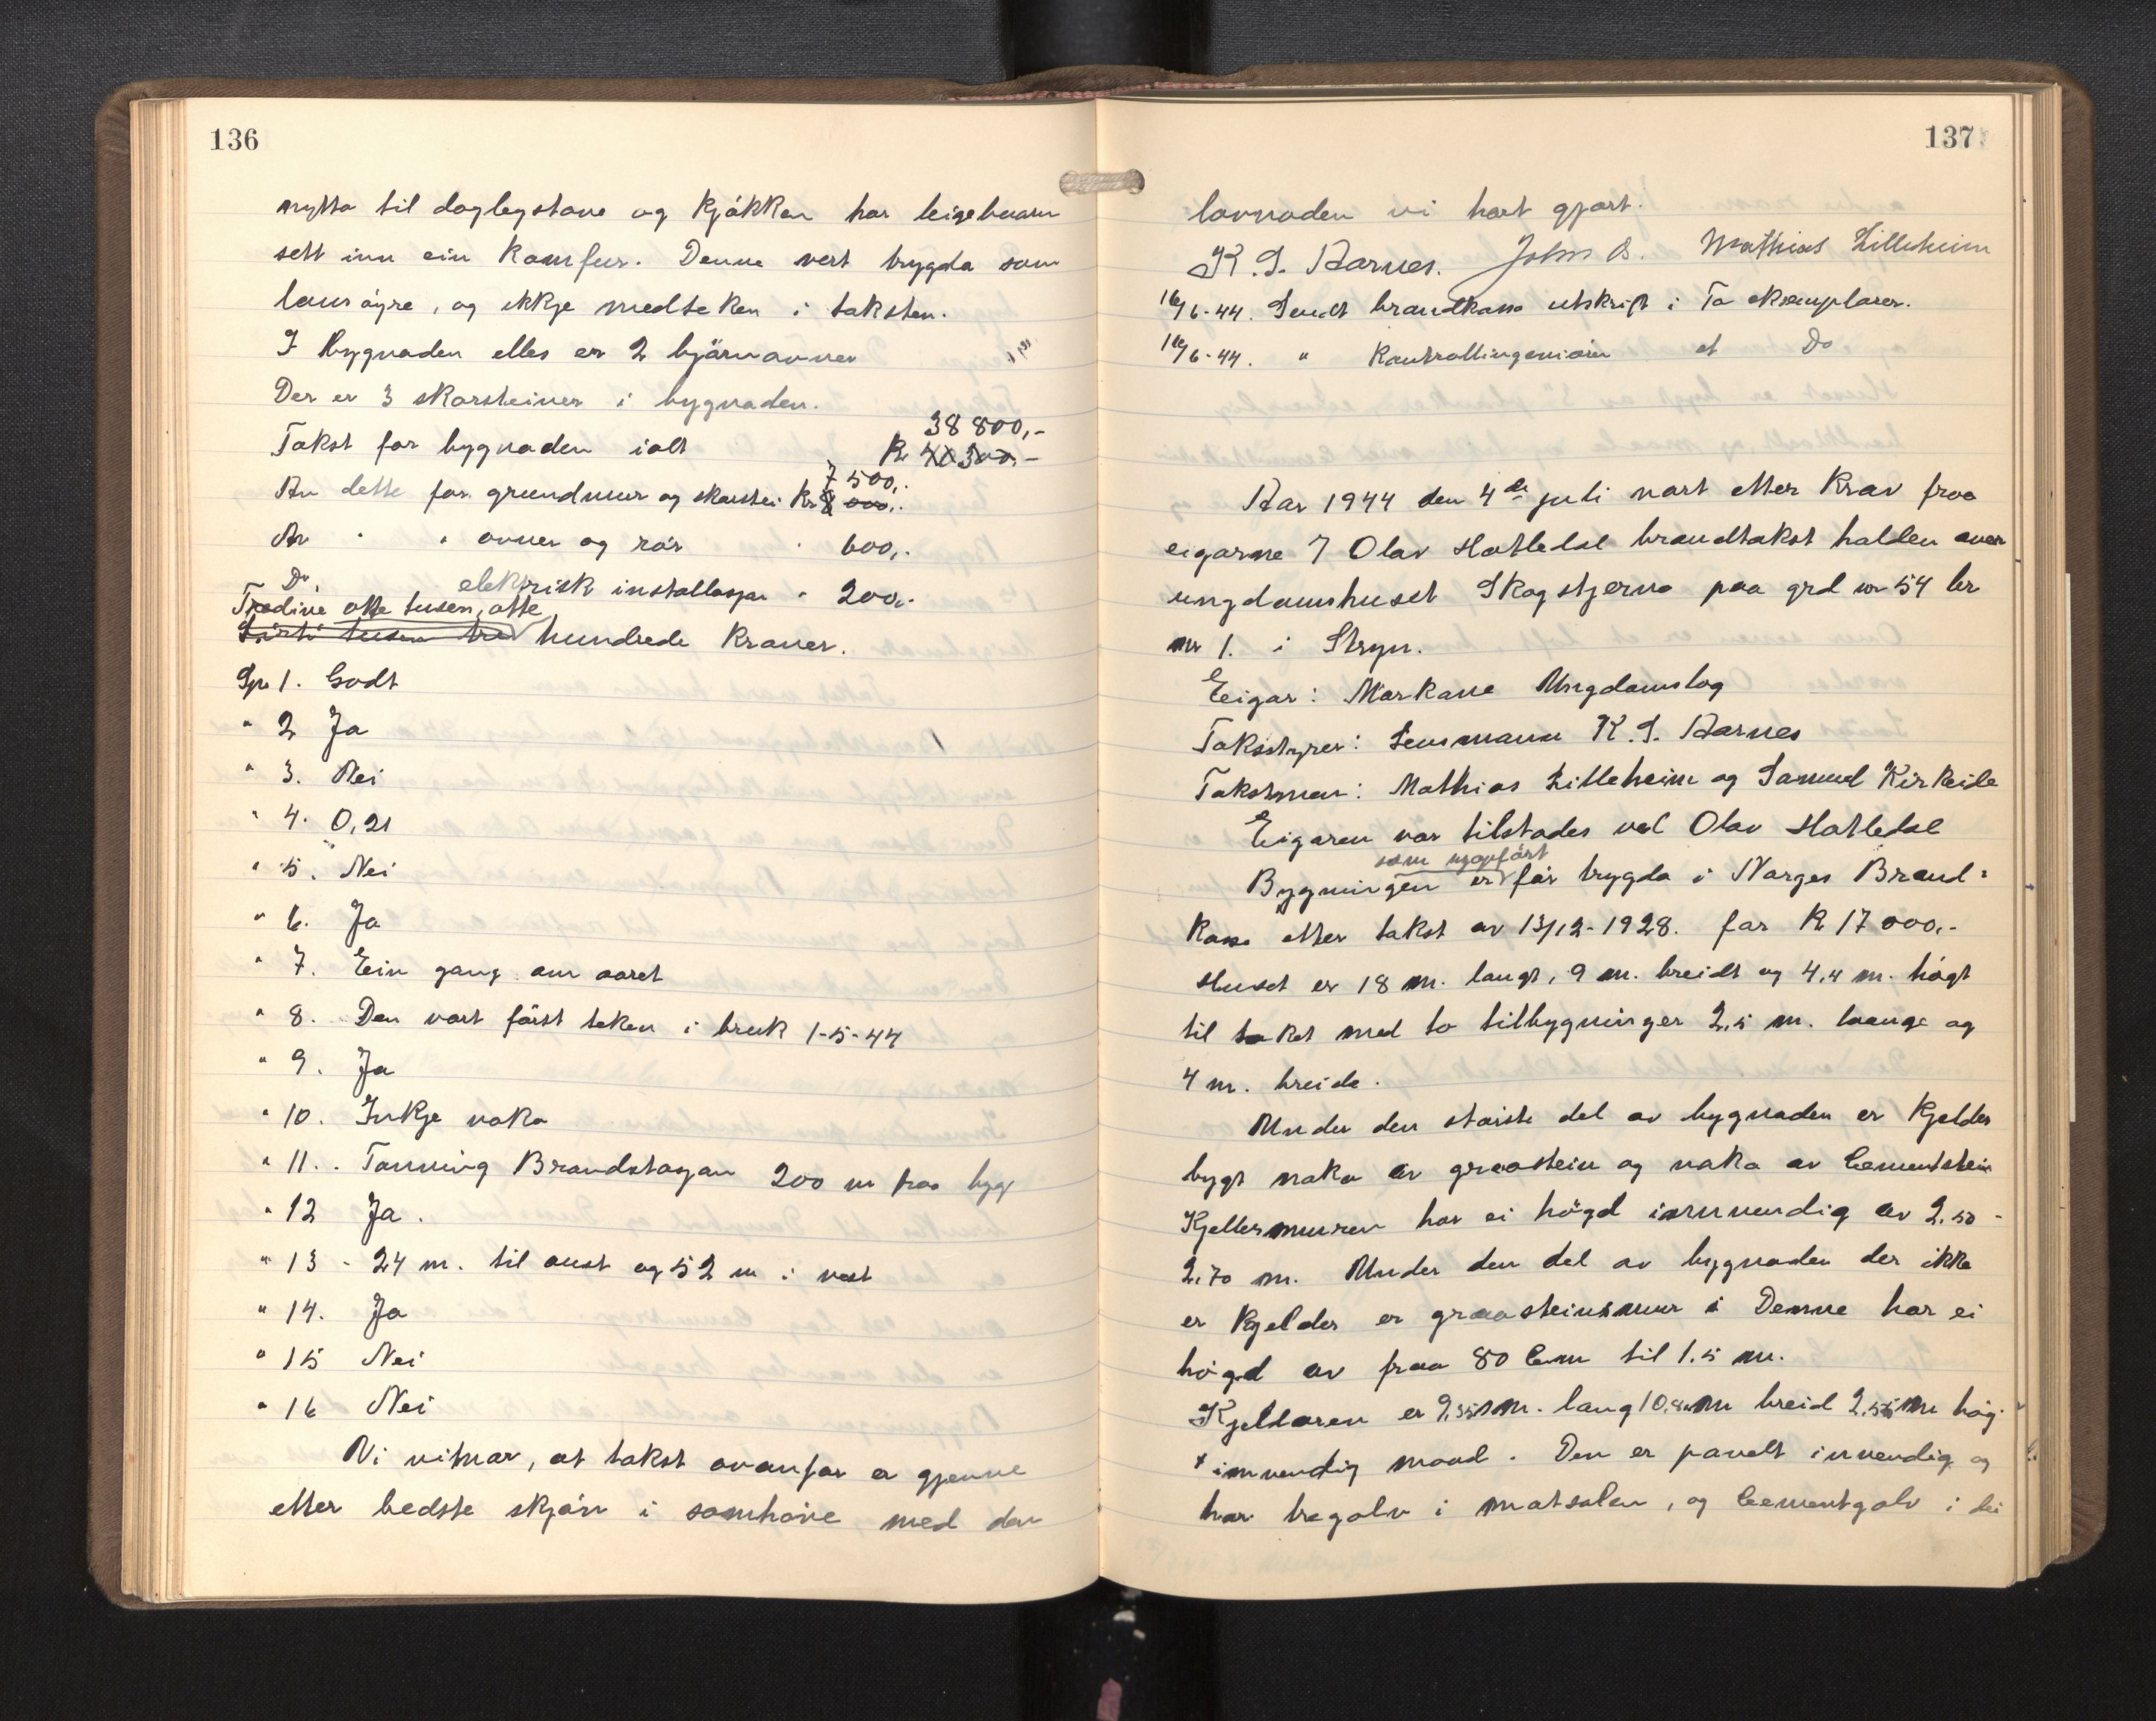 136
nytta til daglegstove og kjøkken har leigebuarn
sett inn ein komfur. Denne vert trygda som
lausøyre, og ikkje medteken i taksten.
I bygnaden elles er 2 bjärnovner
Der er 3 skorsteiner i bygnaden.
38 800,-
Takst for bygnaden ialt kr 40300,-
7 500,-
Av dette for grundmur og skorstei kr 8 000,-
Av " " ovner og rør " 600,-
Do. elektrisk installasjon " 200,-
Tredive otte tusen, otte
Firti tusen tre hundrede kroner.
Sp 1. Godt
" 2 Ja
" 3. Nei
" 4. 0,21
" 5. Nei
" 6. Ja
" 7. Ein gang om aaret
" 8. Den vart først teken i bruk 1-5-44
" 9. Ja
" 10. Inkje noko
" 11. Tonning Brandstasjon 200 m fraa bygg
" 12 Ja.
" 13 - 24 m. til aust og 52 m i vest
" 14. Ja
" 15 Nei
" 16 Nei
Vi vitnar, at takst ovanfor er gjenne
etter bedste skjøn i samhøve med den
137
lovnaden vi havt gjort.
K. S. Aarnes. John B. Mathias Lilleheim
16/6-44. Sendt brandkassa utskrift i To eksemplarer.
16/6-44. " Kontrollingeniøren et Do
Aar 1944 den 4de juli vart etter krav fraa
eigarne 7 Olav Hatledal brandtakst halden over
ungdomshuset Skogstjerna paa grd nr 54 br
nr 1. i Stryn.
Eigar: Markane Ungdomslag
Takststyrer: Lensmann K. S. Aarnes
Takstmen: Mathias Lilleheim og Samuel Kirkeide
Eigaren var tilstades ved Olav Hatledal
som uppført
Bygningen er før trygda i Norges Brand-
kasse etter takst av 13/12-1928. for kr 17 000,-
Huset er 18 m. langt, 9 m. breidt og 4,4 m. høgt
til taket med to tilbygninger 2,5 m. lange og
4 m. breide.
Under den største del av bygnaden er kjelder
bygt noko av graastein og noko av Cementstein
Kjellermuren har ei högd innvendig av 2.50 -
2,70 m. Under den del av bygnaden der ikke
er kjelder er graasteinsmur i Denne har ei
högd av fraa 80 Cem til 1.5 m.
Kjeldaren er 9,35 m. lang 10,8 m breid 2,55 m høg.
innvendig maal. Den er panelt innvendig og
har tregolv i matsalen, og Cementgolv i dei